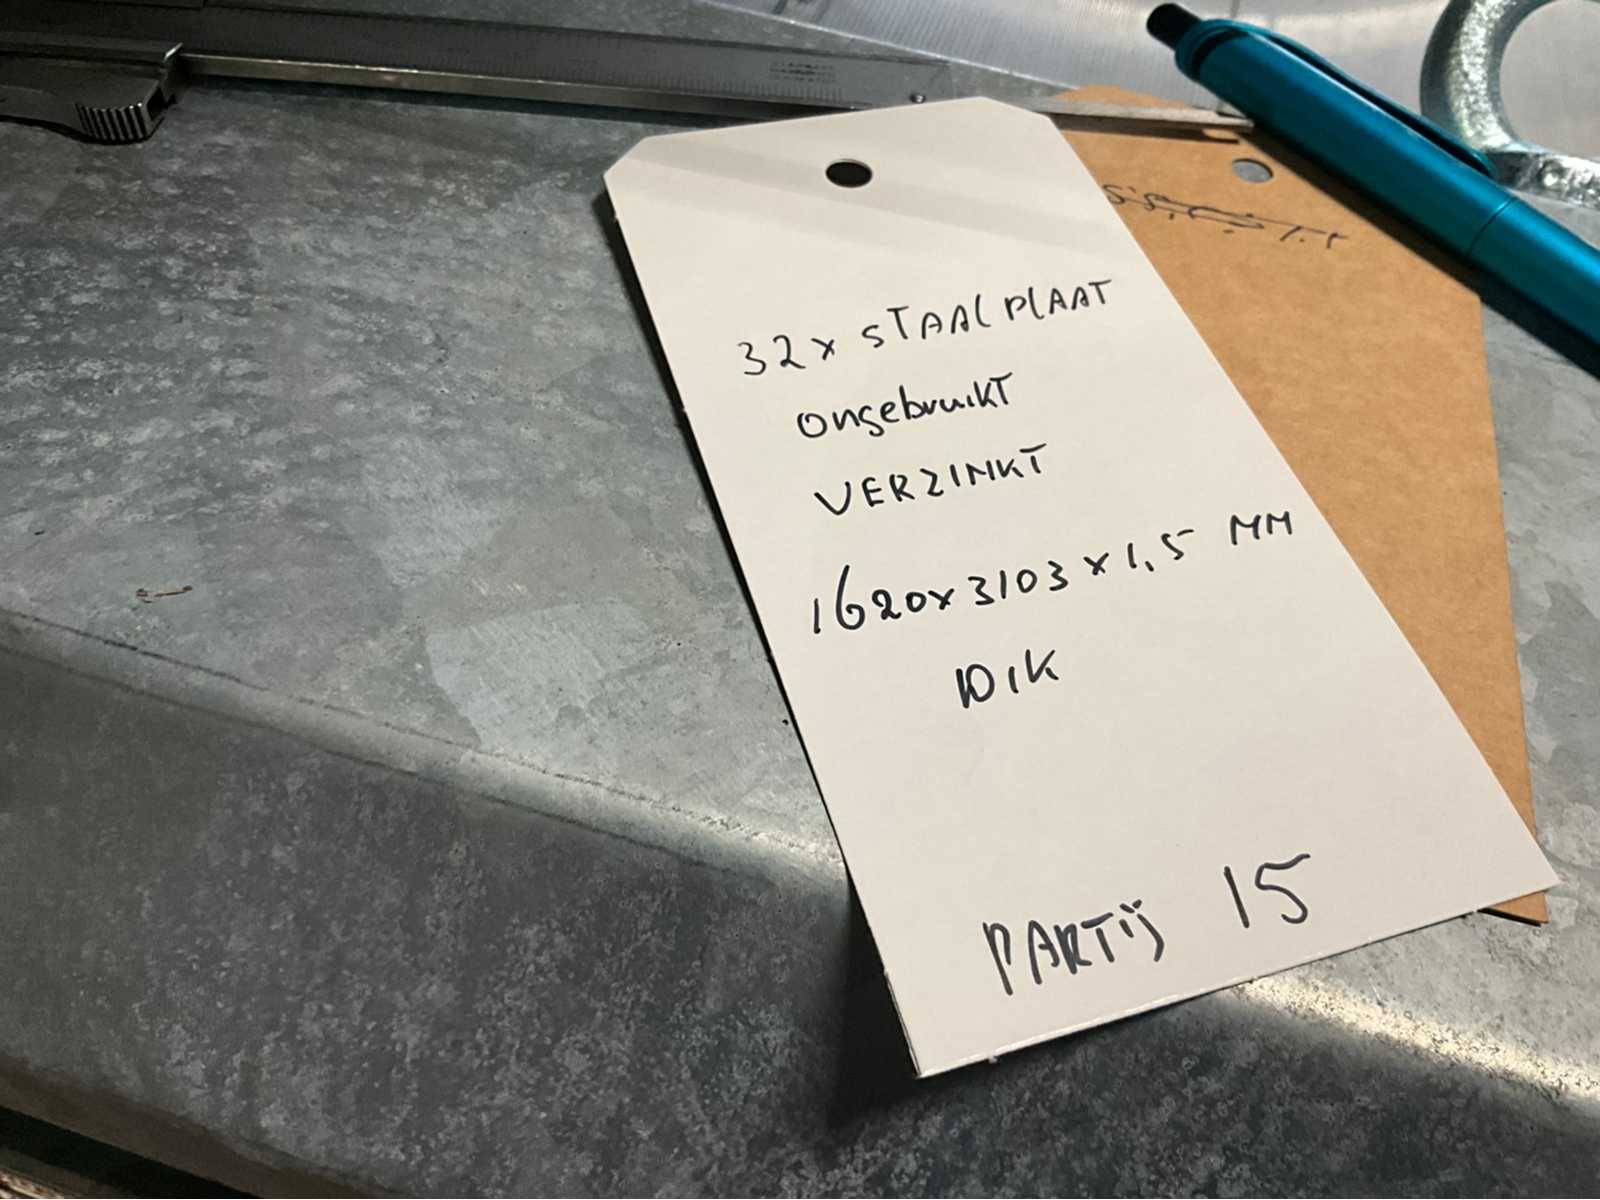 32x STAALPLAAT
ongebruikt
VERZINKT
1620x3103x1,5 MM
DIK
PARTIJ 15